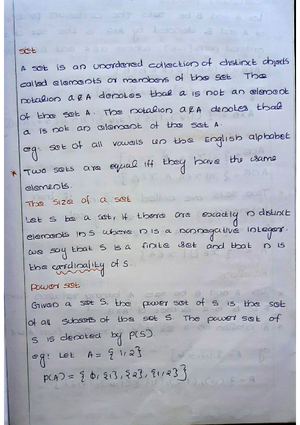 Set
A set is an unordered collection of distinct objects
called elements or members of the set. The
notation a∉A denotes that a is not an element
of the set A. The notation a∉A denotes that
a is not an element of the set A.
eg: set of all vowels in the English alphabet
* Two sets are equal iff they have the same
elements.
The size of a set
Let S be a set, if there are exactly n distinct
elements in S where n is a nonnegative integer.
we say that S is a finite set and that n is
the cardinality of S.
Power set
Given a set S, the power set of S is the set
of all subsets of the set S. The power set of
S is denoted by P(S).
eg: Let A = {1,2}
P(A) = {ϕ, {1}, {2}, {1,2}}